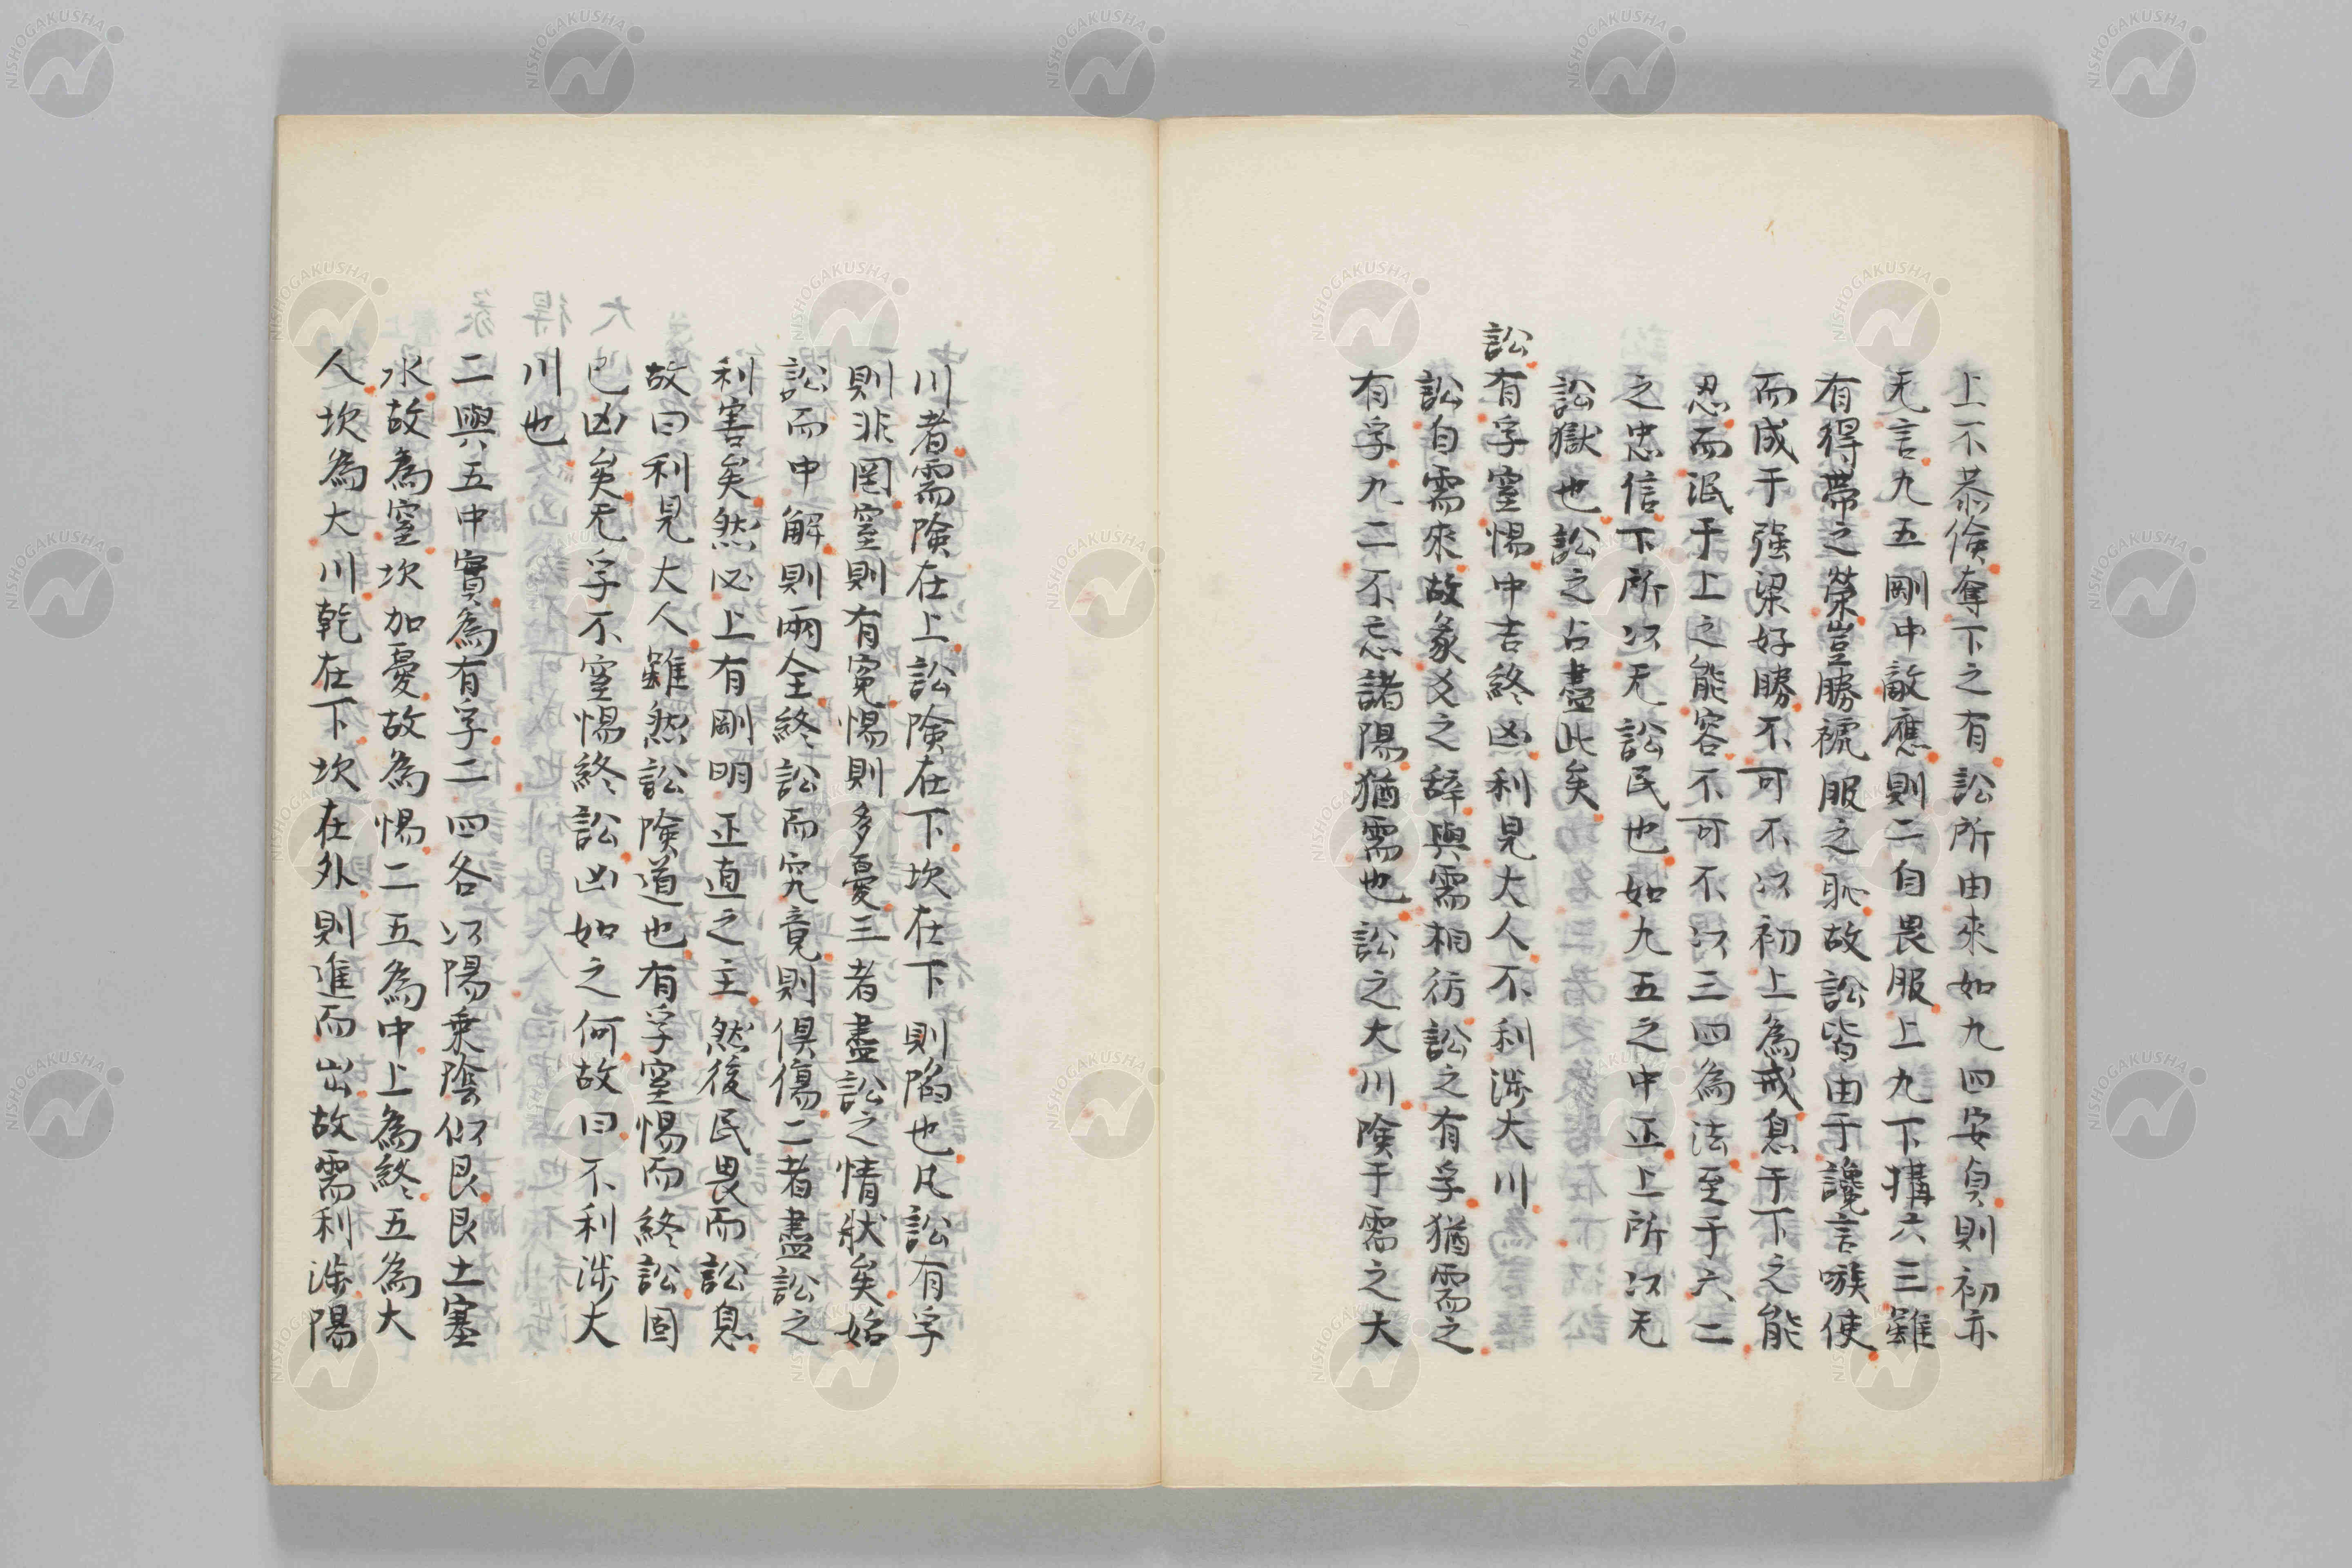 上不恭儉奪下之有訟所由來如九四安貞則初亦
无言九五剛中敵應則二自畏服上九下搆六三雖
有得帶之榮豈勝褫服之恥故訟皆由于讒言嗾使
而成于强梁好勝不可不以初上為戒息于下之能
忍而泯于上之能容不可不以三四為法至于六二
之忠信下所以无訟民也如九五之中正上所以无
訟獄也訟之占盡此矣
訟有孚窒惕中吉終凶利見大人不利涉大川
訟自需來故彖爻之辞與需相彷訟之有孚猶需之
有孚九二不忘諸陽猶需也訟之大川険于需之大
川者需険在上訟険在下坎在下則陷也凡訟有孚
則非罔窒則有寃惕則多憂三者盡訟之情狀矣始
訟而中解則兩全終訟而究竟則俱傷二者盡訟之
利害矣然必上有剛明正直之主然後民畏而訟息
故曰利見大人雖然訟険道也有孚窒惕而終訟固
已凶矣无孚不窒惕終訟凶如之何故曰不利涉大
川也
二與五中實為有孚二四各以陽乗陰似艮艮土塞
水故為窒坎加憂故為惕二五為中上為終五為大
人坎為大川乾在下坎在外則進而出故需利涉陽
NISHOGAKUSHA